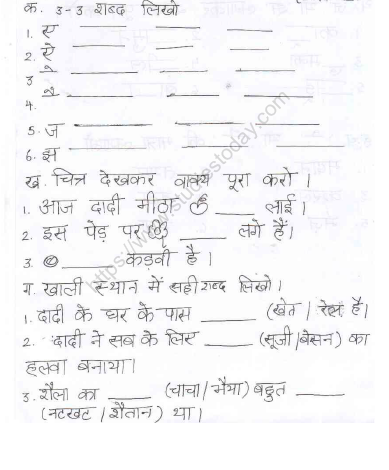 क. 3-3 शब्द लिखो
1. ए ______ ______ ______
2. ऐ ______ ______ ______
3 े ______ ______ ______
4. ै ______ ______ ______
5. ज ______ ______
6. झ ______ ______
ख. चित्र देखकर वाक्य पूरा करो।
1. आज दादी मीठा ____ लाई।
2. इस पेड़ पर ____ लगे हैं।
3. ____ कड़वी है।
ग. खाली स्थान में सही शब्द लिखो।
1. दादी के घर के पास ____ (खेत / रेल है।
2. दादी ने सब के लिए ____ (सूजी/बेसन) का
हलवा बनाया।
3. शैला का ____ (चाचा/भैया) बहुत ____
(नटखट/शैतान) था।